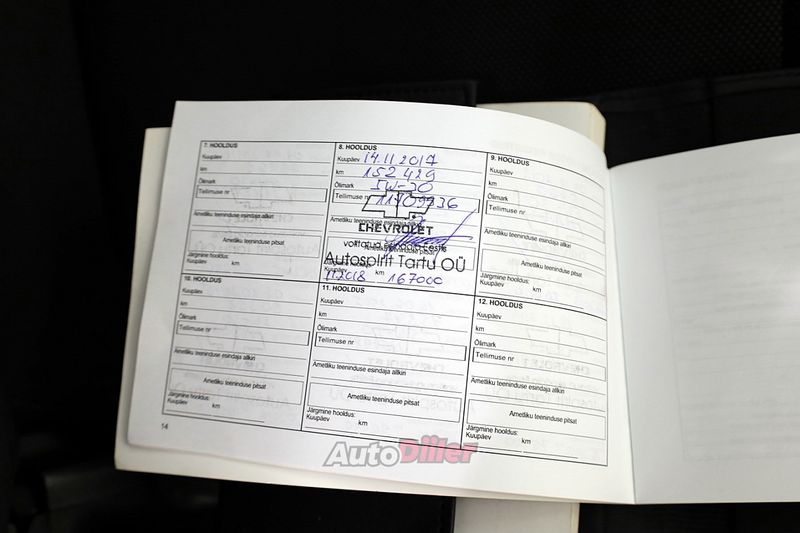 7. HOOLDUS
Kuupäev
km
Õlimark
Tellimuse nr
Ametliku teeninduse esindaja allkiri
Ametliku teeninduse pitsat
Järgmine hooldus:
Kuupäev km
8. HOOLDUS
Kuupäev 14.11.2017
km 152 429
Õlimark 5W-30
Tellimuse nr
Ametliku teeninduse esindaja allkiri
CHEVROLET
volitatud esindaja Eestis
Ametliku teeninduse pitsat
Autospirit Tartu OÜ
km
11.2018 167000
9. HOOLDUS
Kuupäev
km
Õlimark
Tellimuse nr
Ametliku teeninduse esindaja allkiri
Ametliku teeninduse pitsat
Järgmine hooldus:
Kuupäev km
10. HOOLDUS
Kuupäev
km
Õlimark
Tellimuse nr
Ametliku teeninduse esindaja allkiri
Ametliku teeninduse pitsat
Järgmine hooldus:
Kuupäev km
11. HOOLDUS
Kuupäev
km
Õlimark
Tellimuse nr
Ametliku teeninduse esindaja allkiri
Ametliku teeninduse pitsat
Järgmine hooldus:
Kuupäev km
12. HOOLDUS
Kuupäev
km
Õlimark
Tellimuse nr
Ametliku teeninduse esindaja allkiri
Ametliku teeninduse pitsat
Järgmine hooldus:
Kuupäev km
14
AutoDiiler